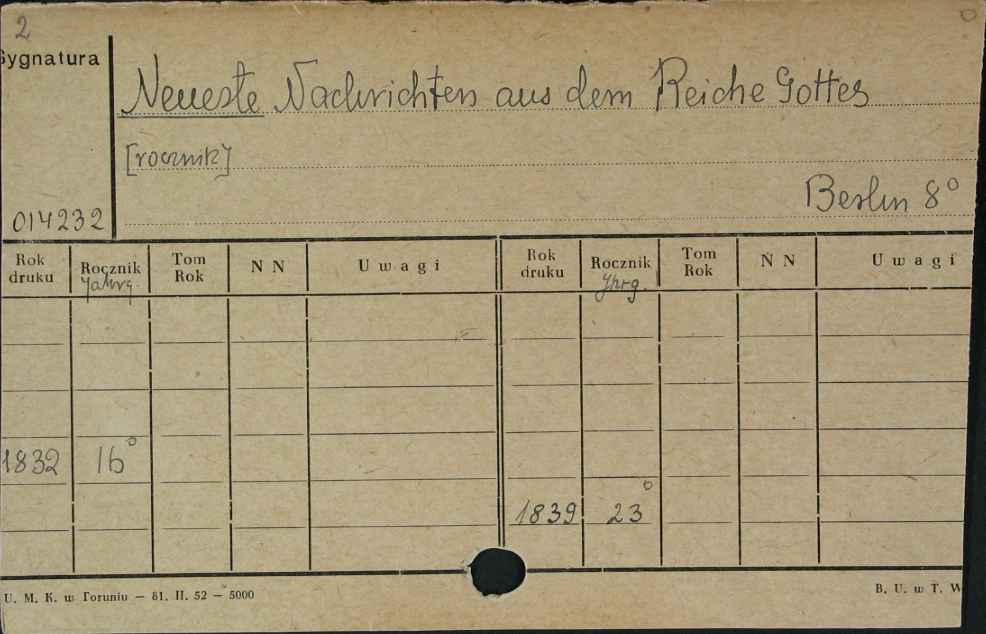 2
Sygnatura
Neueste Nachrichten aus dem Reiche Gottes
[rocznik]
Berlin 8°
014232
Rok druku Rocznik Jahrg. Tom Rok N N Uwagi Rok druku Rocznik Jhrg. Tom Rok N N Uwagi
1832 16°
1839 23°
U. M. K. w Toruniu — 81. II. 52 — 5000
B. U. w T. W